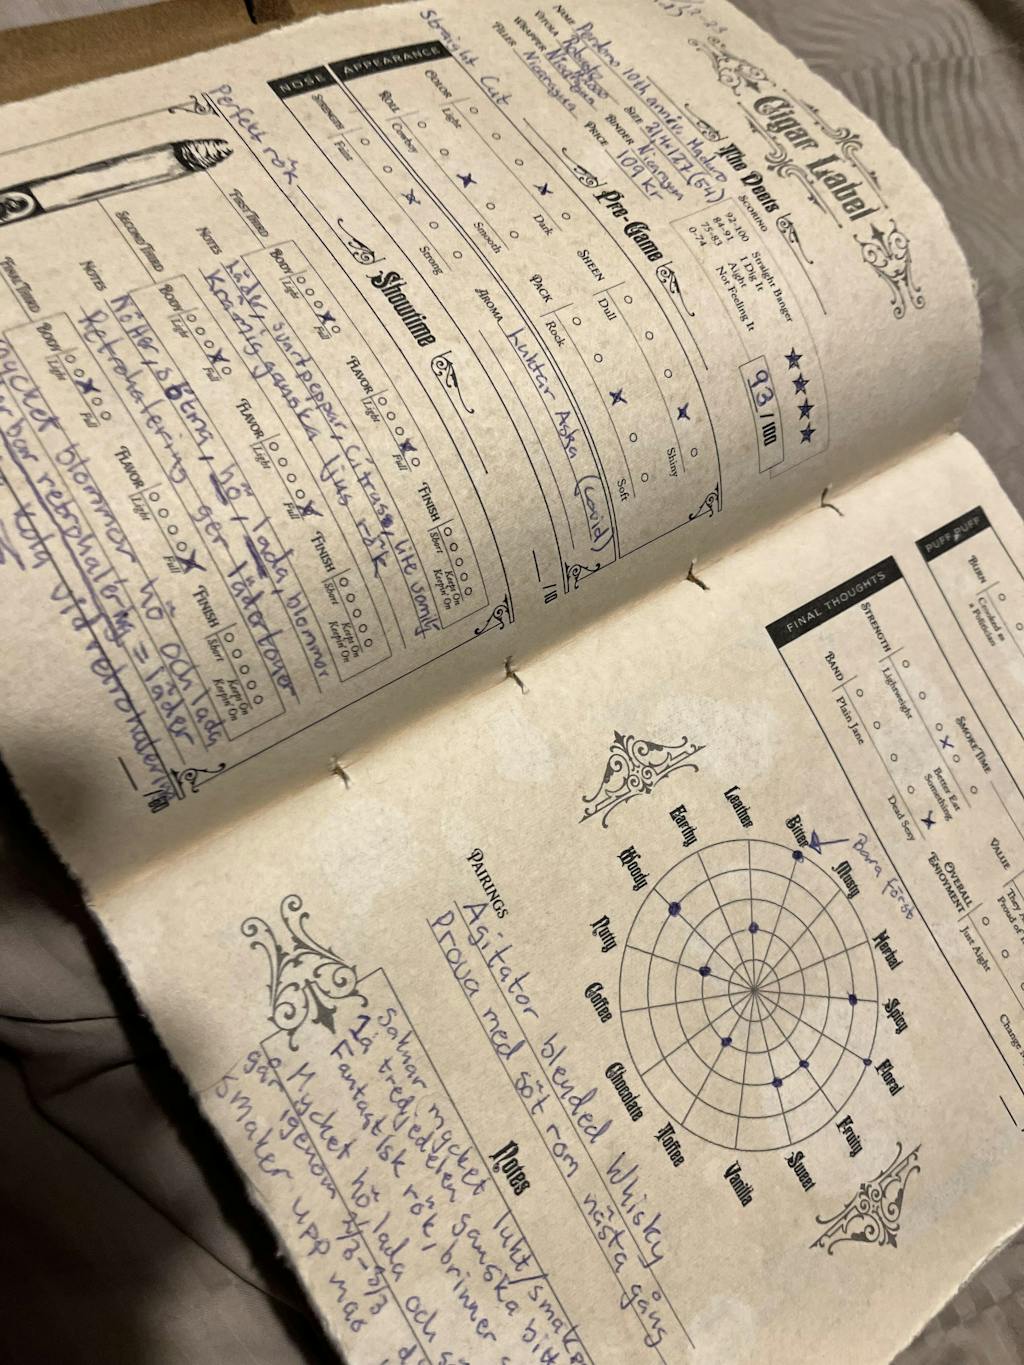 Cigar Label
The Deets
NAME Perdomo 10th anniv. Maduro
VITOLA Robusto
WRAPPER Nicaragua
SIZE
BINDER Nicaragua
FILLER Nicaragua
PRICE 109 kr
SCORING
92-100 Straight Banger
84-91 I Dig It
75-83 Aight
0-74 Not Feeling It
93 / 100
Pre-Game
Straight Cut
APPEARANCE
COLOR
Light
Dark
SHEEN
Dull
Shiny
ROLL
Cowboy
Smooth
PACK
Rock
Soft
NOSE
STRENGTH
Faint
Strong
AROMA Luktar Aska (covid)
/10
Showtime
Perfekt rök
FIRST THIRD
BODY
Light
Full
FLAVOR
Light
Full
FINISH
Short
Keeps On
Keepin' On
NOTES
Läder, svartpeppar, citrus, lite vanilj
Krämig ganska ljus rök
SECOND THIRD
BODY
Light
Full
FLAVOR
Light
Full
FINISH
Short
Keeps On
Keepin' On
NOTES
Nötter, sötma, hö, lada, blommor
Retrohalering ger läder toner
FINAL THIRD
BODY
Light
Full
FLAVOR
Light
Full
FINISH
Short
Keeps On
Keepin' On
mycket blommor hö och lada
retrohalering = läder
kola vid retrohalering
/10
PUFF PUFF
BURN
Crooked as
a Politician
SMOKE TIME
FINAL THOUGHTS
STRENGTH
Lightweight
Better Eat
Something
VALUE
BAND
Plain Jane
Dead Sexy
OVERALL
ENJOYMENT
Just Aight
Bara först
Leather
Bitter
Musty
Herbal
Spicy
Floral
Fruity
Sweet
Vanilla
Toffee
Chocolate
Coffee
Nutty
Woody
Earthy
PAIRINGS
Agitator blended Whisky
Prova med söt rom nästa gång
Notes
Saknar mycket lukt/smak
1a tredjedelen ganska
Fantastisk rök, brinner
Mycket hö lada och
går igenom 2/3-3/3
Smaker upp mao